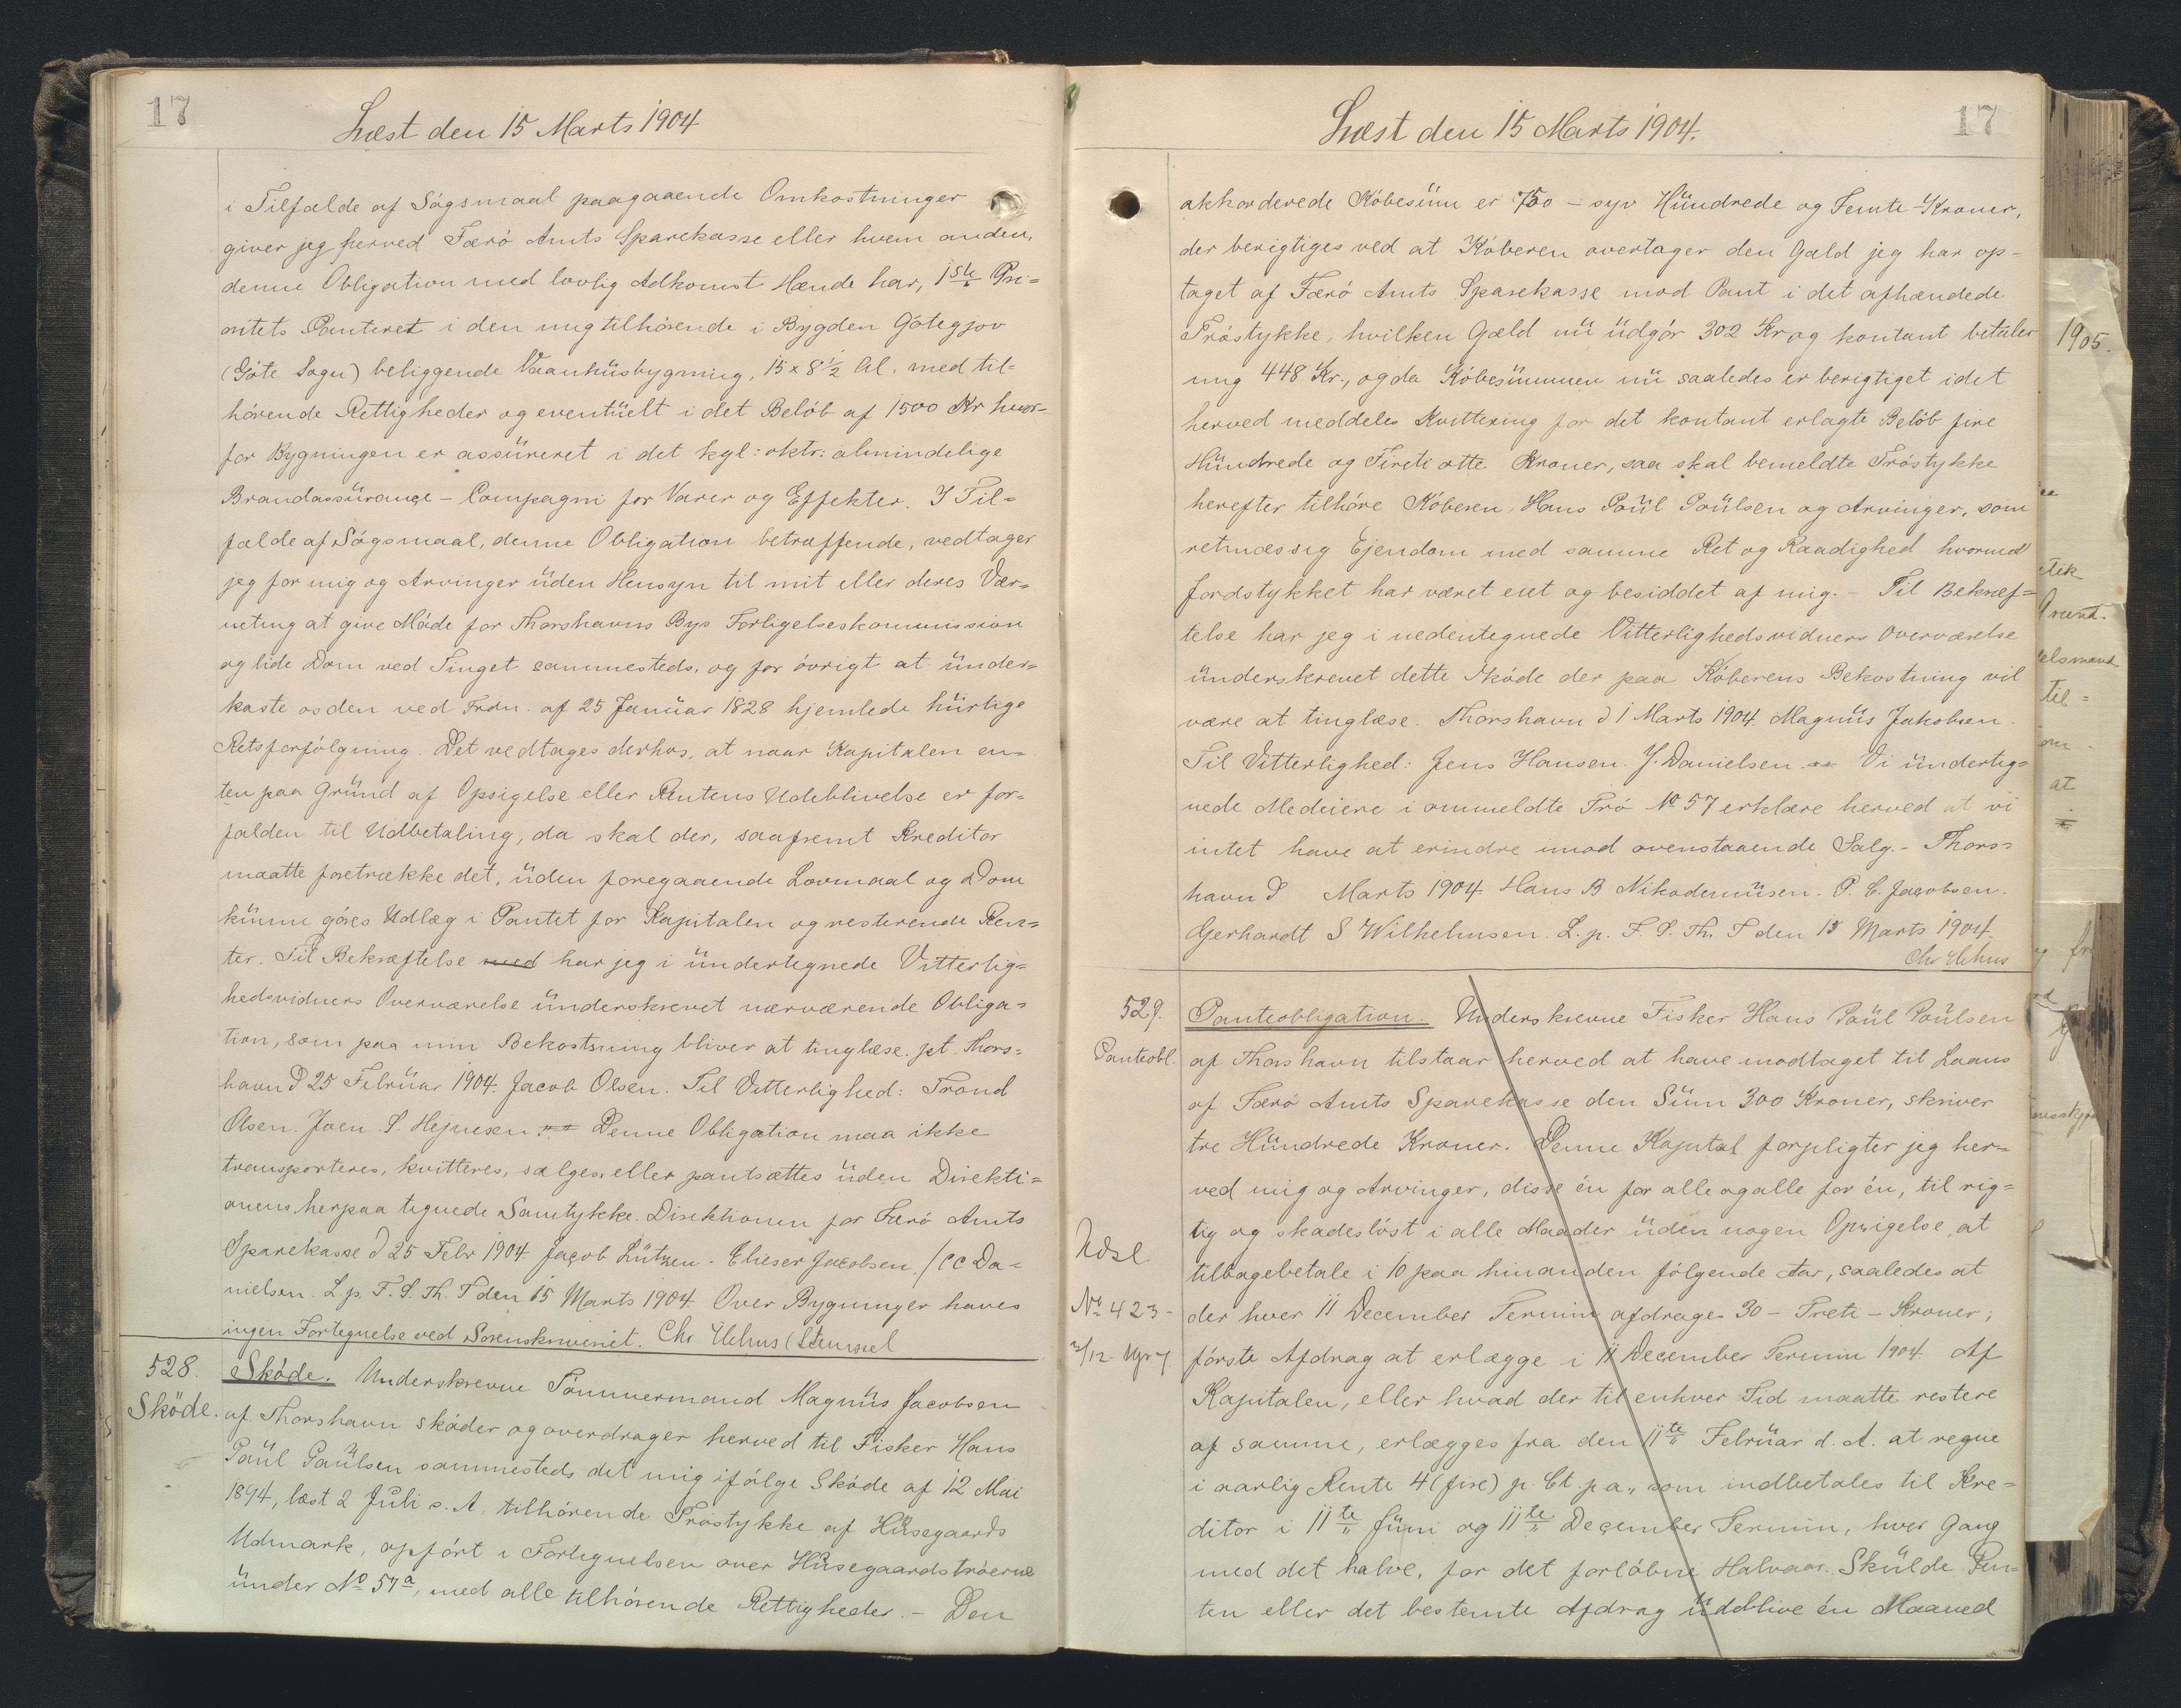 17
Læst den 15 Marts 1904
i Tilfælde af Søgsmaal paagaaende Omkostninger
giver jeg herved Færø Amts Sparekasse eller hvem anden,
denne Obligation med lovlig Adkomst Hænde har, 1ste Pri=
oritets Panteret i den mig tilhørende i Bygden Gøtegjov
(Gøte Sogn) beliggende Vaanhusbygning, 15 x 8 1/2 Al. med til=
hørende Rettigheder og eventuelt i det Beløb af 1500 Kr hvor=
for Bygningen er assureret i det kgl: oktr: almindelige
Brandassurance - Compagni for Varer og Effekter. I Til=
fælde af Søgsmaal, denne Obligation betræffende, vedtager
jeg for mig og Arvinger uden Hensyn til mit eller deres Vær=
neting at give Møde for Thorshavns Bys Forligelseskommission
og lide Dom ved Tinget sammesteds, og for øvrigt at under=
kaste os den ved Frdn. af 25 Januar 1828 hjemlede hurtige
Retsforfølgning. Det vedtages derhos, at naar Kapitalen en=
ten paa Grund af Opsigelse eller Rentens Udeblivelse er for=
falden til Udbetaling, da skal der, saafremt Kreditor
maatte foretrække det, uden foregaaende Lovmaal og Dom
kunne gøres Udlæg i Pantet for Kapitalen og resterende Ren=
ter. Til Bekræftelse med har jeg i undertegnede Vitterlig=
hedsvidners Overværelse underskrevet nærværende Obliga=
tion, som paa min Bekostning bliver at tinglæse. pt. Thors=
havn d 25 Februar 1904. Jacob Olsen. Til Vitterlighed: Trond
Olsen. Joen. S. Hejnesen. Denne Obligation maa ikke
transporteres, kvitteres, sælges eller pantsættes uden Direkti=
onens herpaa tegnede Samtykke. Direktionen for Færø Amts
Sparekasse d 25 Febr 1904 Jacob Lützen - Elieser Jacobsen / CC Da=
nielsen. L. p. F. S. Th. T den 15 Marts 1904. Over Bygninger haves
ingen Fortegnelse ved Sorenskriveriet.
528.
Skøde.
Skøde. Underskrevne Tømmermand Magnus Jacobsen
af Thorshavn skøder og overdrager herved til Fisker Hans
Paul Paulsen sammesteds det mig ifølge Skøde af 12 Mai
1894, læst 2 Juli s. A. tilhørende Trøstykke af Husegaards
Udmark, opført i Fortegnelsen over Husegaardstrøerne
under No 57a, med alle tilhørende Rettigheder. - Den
Læst den 15 Marts 1904.
17
akkorderede Købesum er 750 - syv Hundrede og Femte - Kroner,
der berigtiges ved at Køberen overtager den Gæld jeg har op=
taget af Færø Amts Sparekasse mod Pant i det afhændede
Trøstykke, hvilken Gæld nu udgør 302 Kr og kontant betaler
mig 448 Kr., og da Købesummen nu saaledes er berigtiget idet
herved meddeles Kvittering for det kontant erlagte Beløb fire
Hundrede og Firetiotte. Kroner, saa skal bemeldte Trøstykke
herefter tilhøre Køberen, Hans Paul Paulsen og Arvinger, som
retmæssig Ejendom med samme Ret og Raadighed hvormed
Jordstykket har været eiet og besiddet af mig. - Til Bekræf=
telse har jeg i nedentegnede Vitterlighedsvidners Overværelse
underskrevet dette Skøde der paa Køberens Bekostning vil
være at tinglæse. Thorshavn d 1 Marts 1904. Magnus Jakobsen.
Til Vitterlighed: Jens Hansen. J. Danielsen. Vi underteg=
nede Medeiere i ommeldte Trø No 57 erklære herved at vi
intet have at erindre imod ovenstaaende Salg. - Thors=
havn d Marts 1904. Hans B Nikodemusen. P. C. Jacobsen.
Gerhardt S Wilhelmsen. L. p. F. S. Th. T den 15 Marts 1904.
529.
Panteobl.
Panteobligation. Underskrevne Fisker Hans Paul Paulsen
af Thorshavn tilstaar herved at have modtaget til Laans
af Færø Amts Sparekasse den Sum 300 Kroner, skriver
tre Hundrede Kroner. Denne Kapital forpligter jeg her=
ved mig og Arvinger, disse én for alle og alle for én, til rig=
tig og skadesløst i alle Maader uden nogen Opsigelse, at
tilbagebetale i 10 paa hinanden følgende Aar, saaledes at
der hver 11 December Termin afdrages 30 - Trete - Kroner,
første Afdrag at erlægge i 11 December Termin 1904. Af
Kapitalen, eller hvad der til enhver Tid maatte restere
af samme, erlægges fra den 11te Februar d. A. at regne
i aarlig Rente 4 (fire) p. Ct. p a., som indbetales til Kre=
ditor i 11te Juni og 11te December Termin, hver Gang
med det halve, for det forløbne Halvaar. Skulde Ren=
ten eller det bestemte Afdrag udeblive én Maaned
Udsl
No 423-
1905.
til=
at